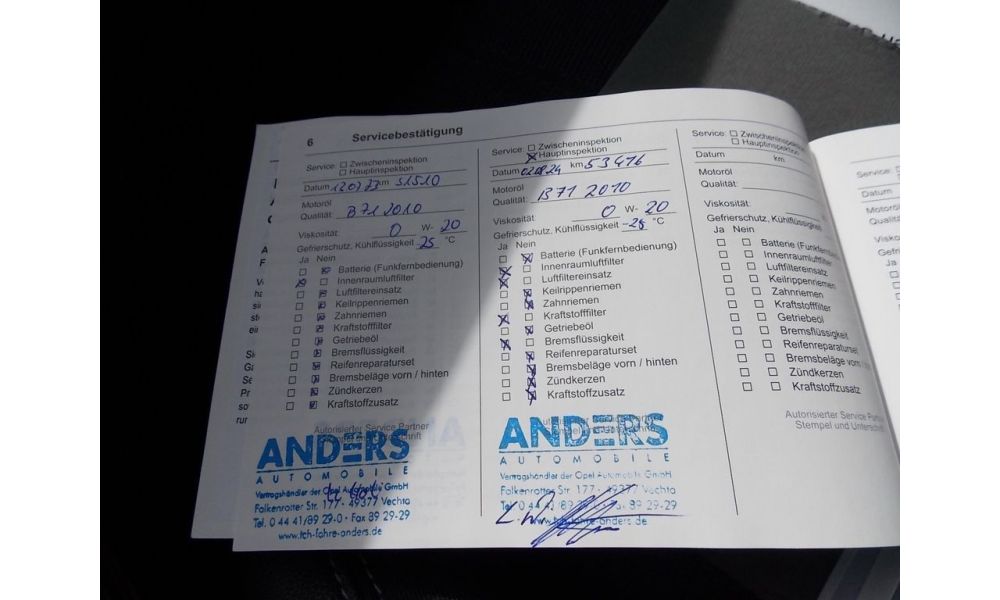 6 Servicebestätigung
Service: Zwischeninspektion
Hauptinspektion
Datum 12.07.23 km 51510
Motoröl
Qualität: B71 2010
Viskosität: 0 W- 20
Gefrierschutz, Kühlflüssigkeit 25 °C
Ja Nein
Batterie (Funkfernbedienung)
Innenraumluftfilter
Luftfiltereinsatz
Keilrippenriemen
Zahnriemen
Kraftstofffilter
Getriebeöl
Bremsflüssigkeit
Reifenreparaturset
Bremsbeläge vorn / hinten
Zündkerzen
Kraftstoffzusatz
Autorisierter Service Partner
ANDERS
AUTOMOBILE
Vertragshändler der Opel Automobile GmbH
Falkenrotter Str. 177 - 49377 Vechta
Tel. 0 44 41/89 29-0 - Fax 89 29-29
www.ich-fahre-anders.de
Service: Zwischeninspektion
Hauptinspektion
Datum 02.08.24 km 53416
Motoröl
Qualität: B71 2010
Viskosität: 0 W- 20
Gefrierschutz, Kühlflüssigkeit -25 °C
Ja Nein
Batterie (Funkfernbedienung)
Innenraumluftfilter
Luftfiltereinsatz
Keilrippenriemen
Zahnriemen
Kraftstofffilter
Getriebeöl
Bremsflüssigkeit
Reifenreparaturset
Bremsbeläge vorn / hinten
Zündkerzen
Kraftstoffzusatz
Autorisierter Service Partner
ANDERS
AUTOMOBILE
Vertragshändler der Opel Automobile GmbH
Falkenrotter Str. 177 - 49377 Vechta
Tel. 0 44 41/89 Fax 89 29-29
www.ich-fahre-anders.de
Service: Zwischeninspektion
Hauptinspektion
Datum km
Motoröl
Qualität:
Viskosität:
Gefrierschutz, Kühlflüssigkeit
Ja Nein
Batterie (Funkfern
Innenraumluftfilter
Luftfiltereinsatz
Keilrippenriemen
Zahnriemen
Kraftstofffilter
Getriebeöl
Bremsflüssigkeit
Reifenreparaturset
Bremsbeläge vorn / hinten
Zündkerzen
Kraftstoffzusatz
Autorisierter Service Partner
Stempel und Unterschrift
Service:
Datum
Motoröl
Qualitä
Visko
Gefri
Ja